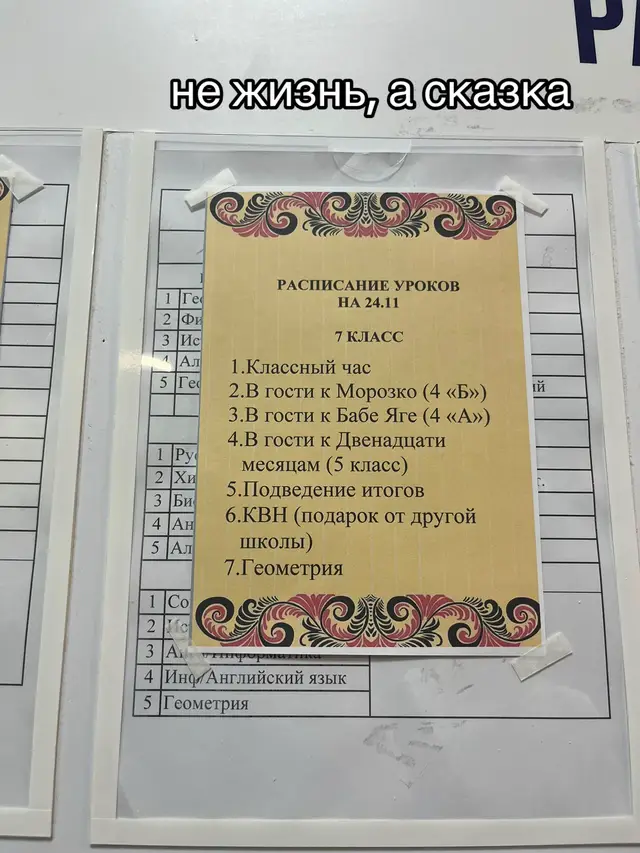 не жизнь, а сказка
РАСПИСАНИЕ УРОКОВ
НА 24.11
7 КЛАСС
1.Классный час
2.В гости к Морозко (4 «Б»)
3.В гости к Бабе Яге (4 «А»)
4.В гости к Двенадцати
месяцам (5 класс)
5.Подведение итогов
6.КВН (подарок от другой
школы)
7.Геометрия
1
2
3
4
5
1
2
3
4
5
1
2
3
4 Инф/Английский язык
5 Геометрия